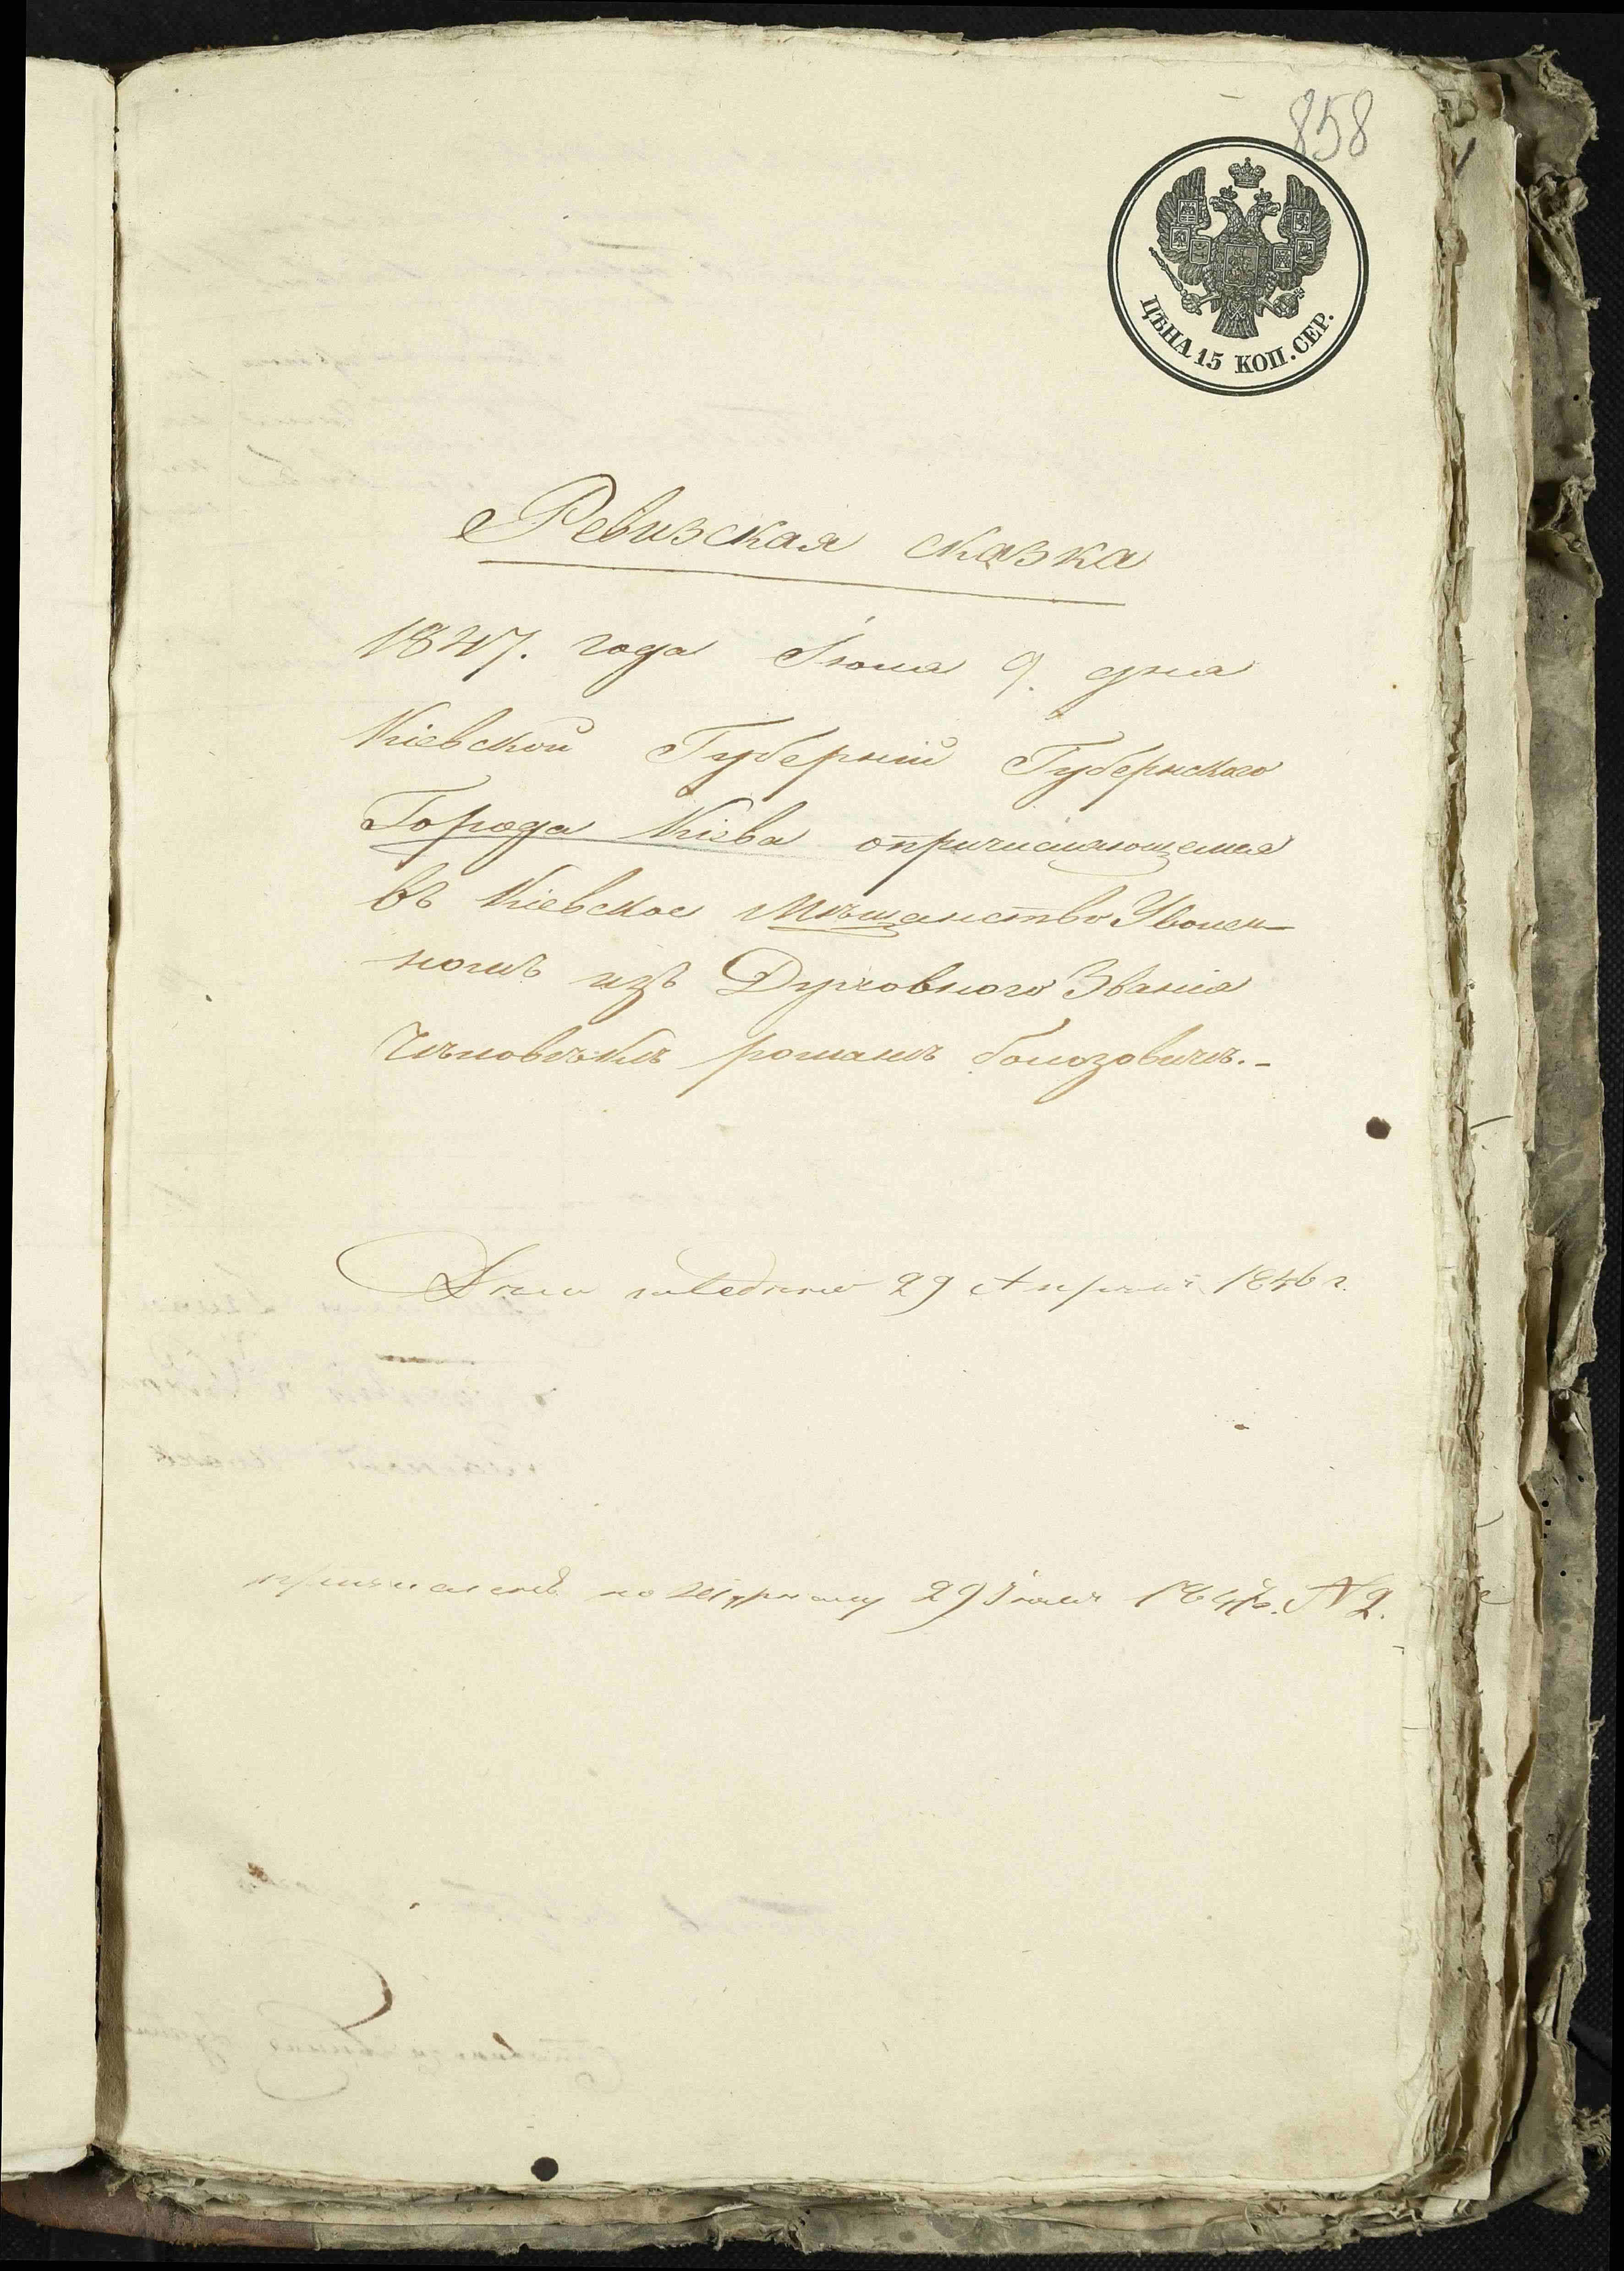 858
ЦѢНА 15 КОП. СЕР.
Ревизская сказка
1847. года Іюня 9. дня
Кіевской Губерніи Губернского
Города Кіева опричисляющемся
въ Кіевское мѣщанство Уволен-
номъ изъ Духовного Званія
Чѣловѣкѣ романѣ
29 Апреля 1846 г.
причисленъ по журналу 29 Іюля № 2.